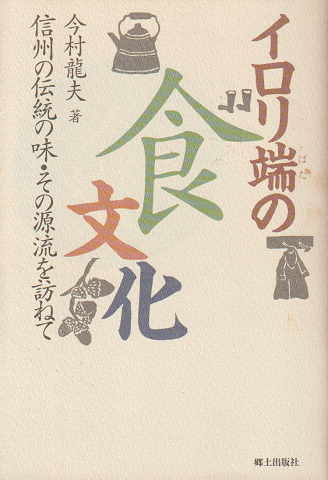 イロリ端の
ばた
食
文
化
信州の伝統の味・その源流を訪ねて
今村龍夫 著
郷土出版社